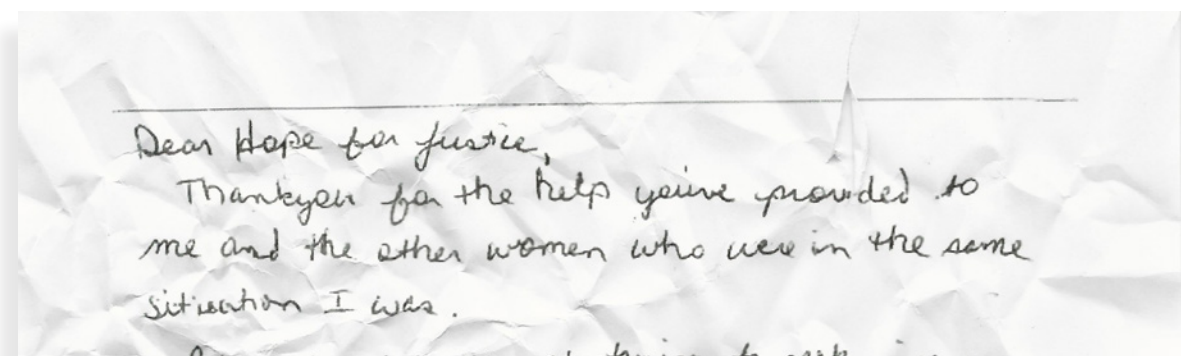 Dear Hope for Justice,
Thankyou for the help you've provided to
me and the other women who were in the same
situation I was.